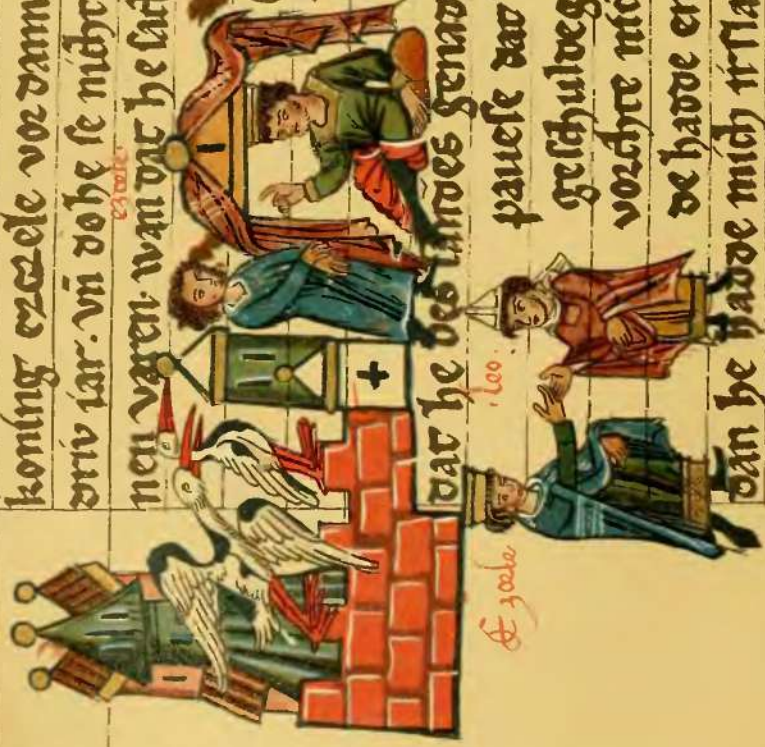 koning ezcele vor dann
driv iar. vn̄ do he se nicht
ezcele.
nen varen. wan dat he sach
dat he des landes genad
.leo.
pauese dar
geschuldeg
vorchte nic
de hadde en
dan he hadde mich irsla